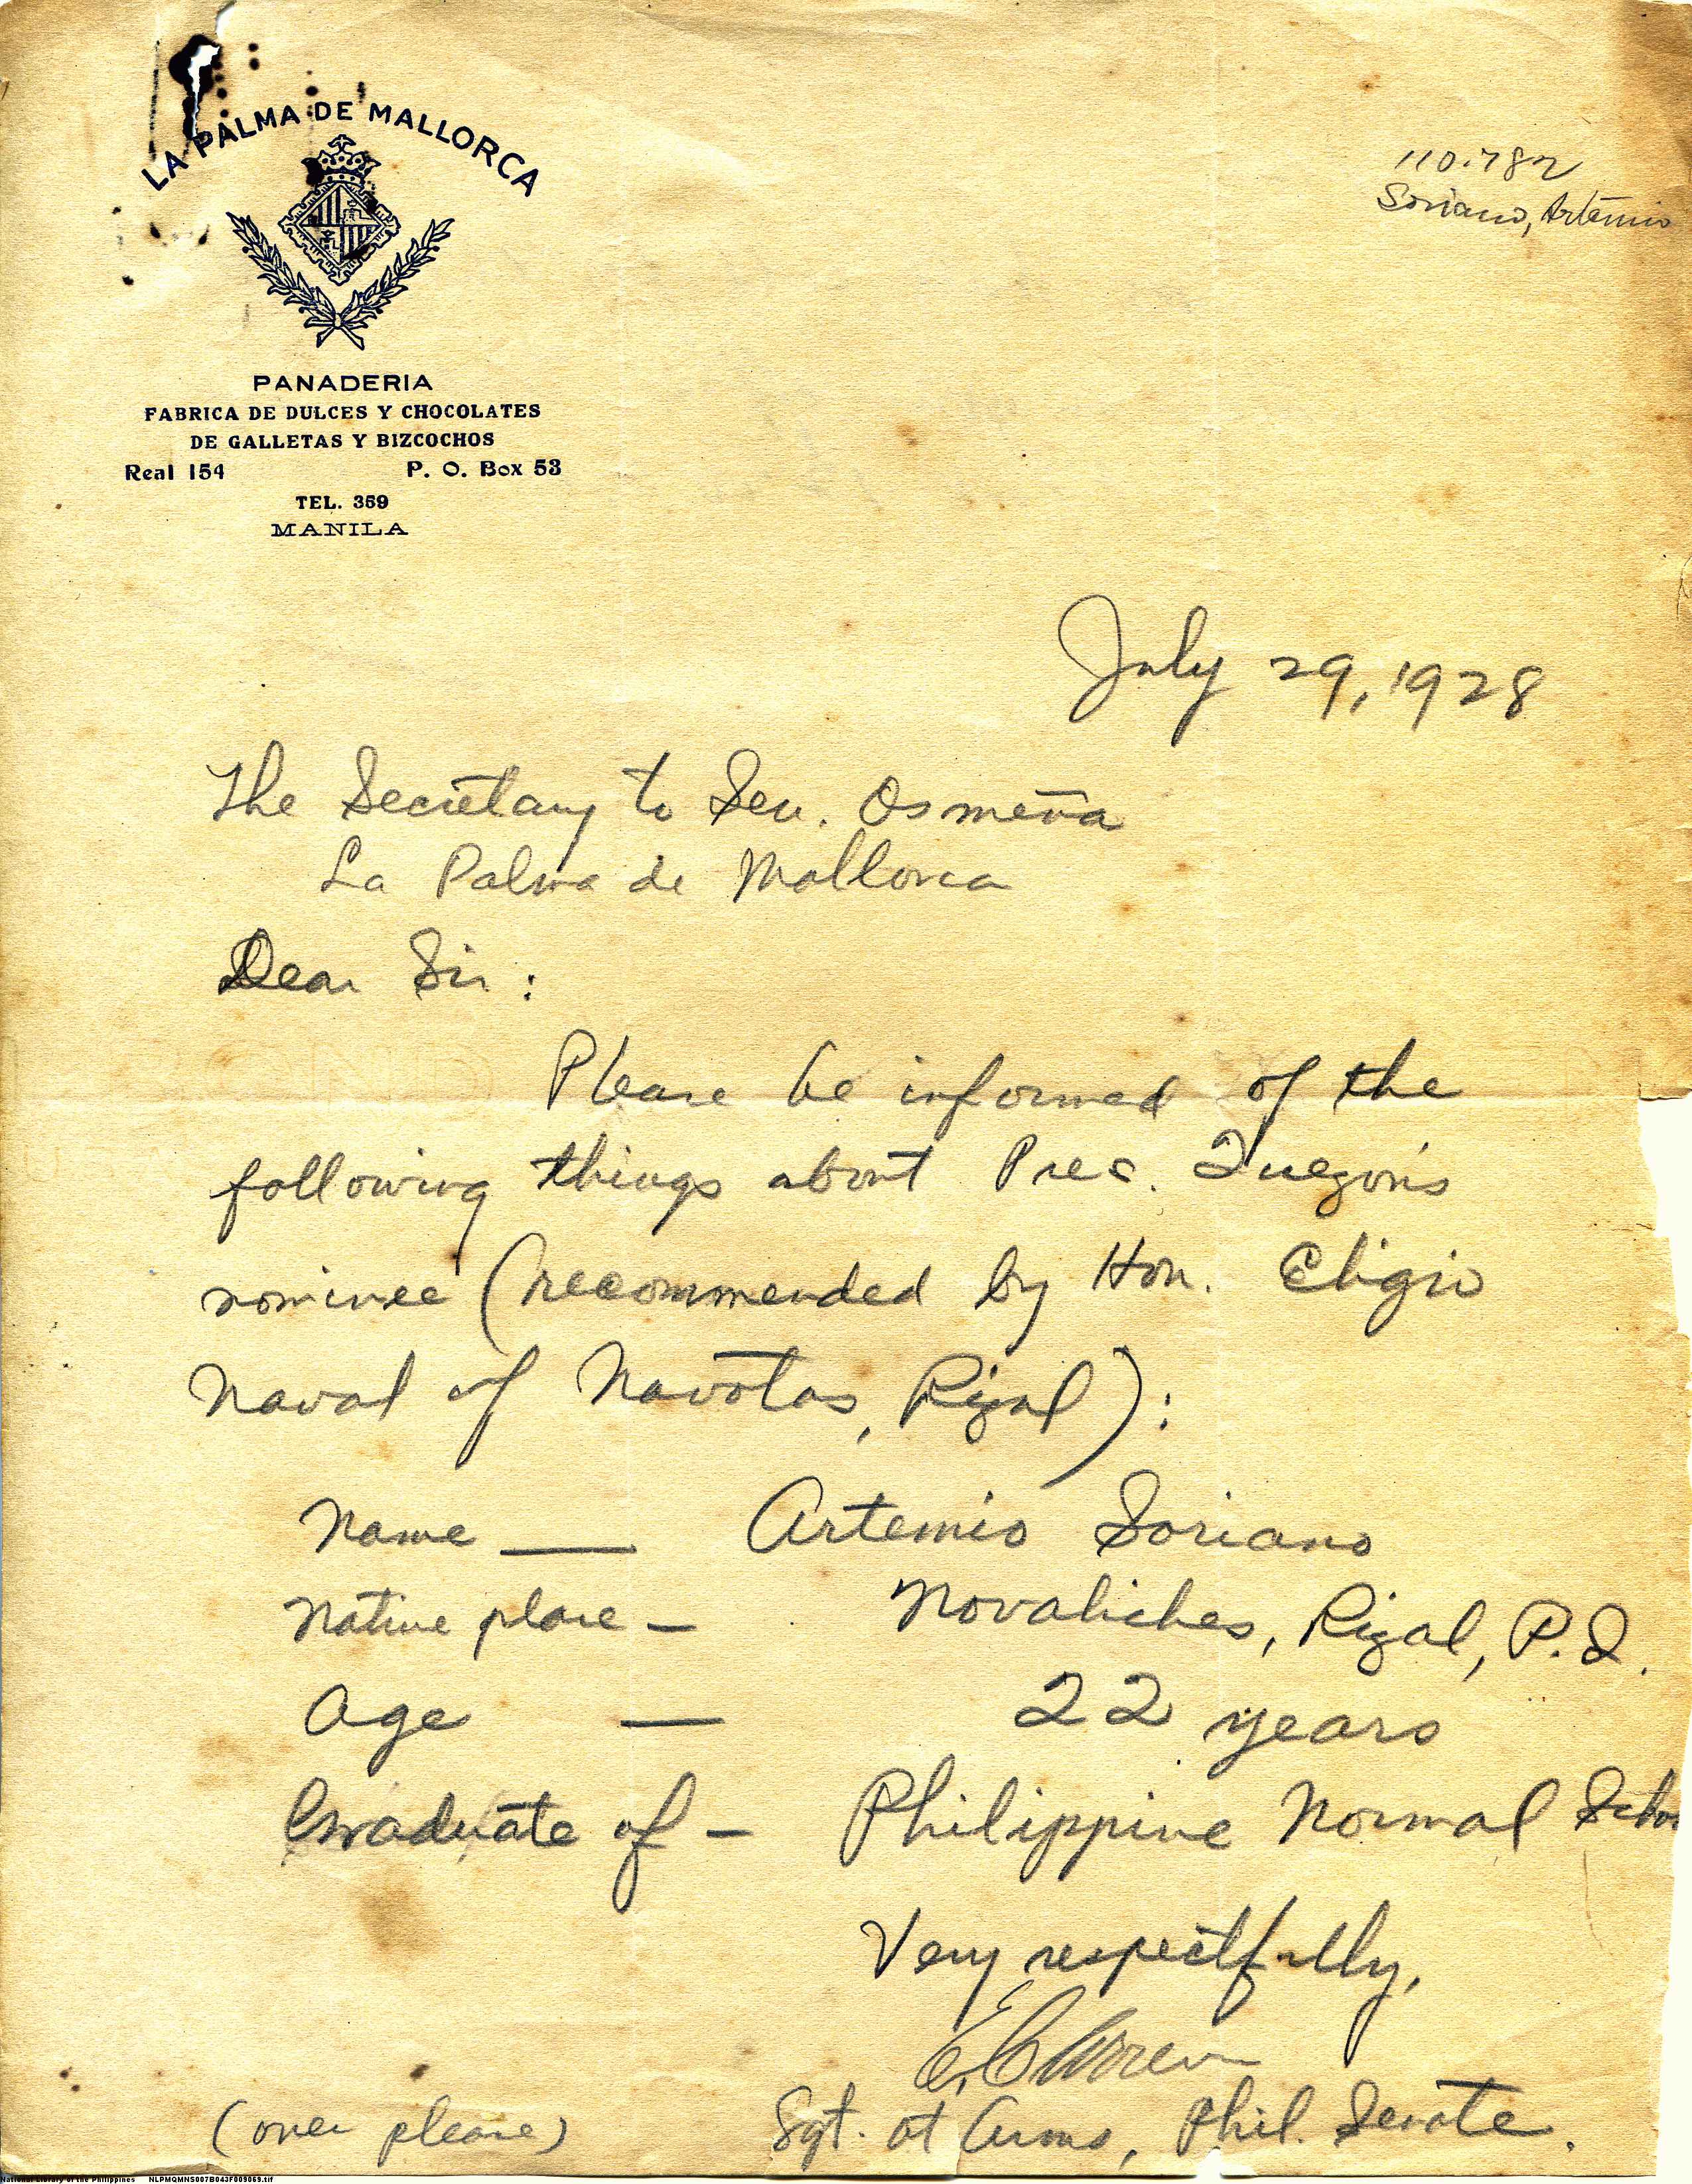 LA PALMA DE MALLORCA
PANADERIA
FABRICA DE DULCES Y CHOCOLATES
DE GALLETAS Y BIZCOCHOS
Real 154 P. O. Box 53
TEL. 359
MANILA
110.782
Soriano, Artemio
July 29, 1928
The Secretary to Sen. Osmeña
La Palma de Mallorca
Dear Sir :
Please be informed of the
following things about Pres. Quezon's
nominee (recommended by Hon. Eligio
Naval of Navotas, Rizal) :
Name — Artemio Soriano
Native place — Novaliches, Rizal, P.I.
Age — 22 years
Graduate of — Philippine Normal Schoo
Very respectfully,
Sgt. at Arms, Phil. Senate.
(over please)
National Library of the Philippines NLPMQMNS007B043F009069.tif